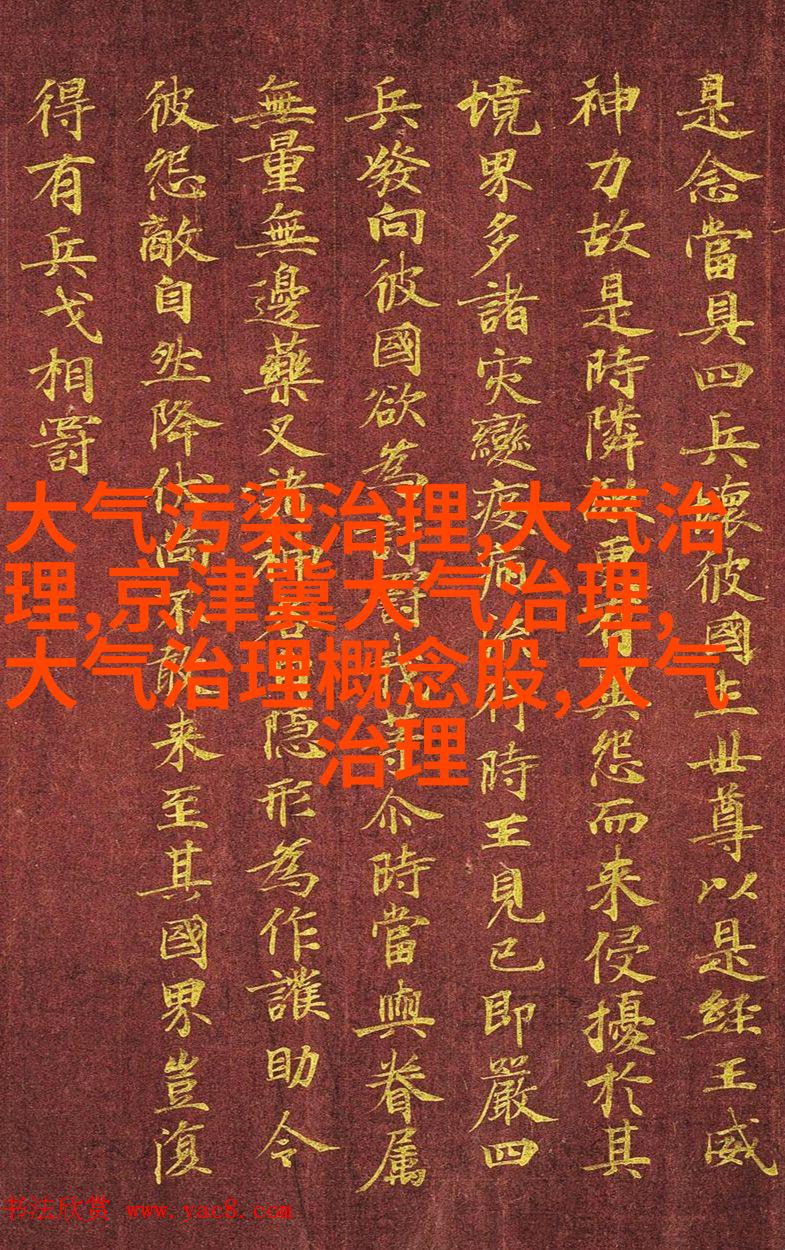 是念當具四兵壞彼國土世尊以是經王威
神力故是時隣敵更有異怨而来侵擾於其
境界多諸灾變疫病流行時王見已即嚴四
兵發向彼國欲為討罸我等尒時當與眷属
無量無邊藥叉諸神各自隱形為作護助令
彼怨敵自然降伏尚不敢来至其國界豈復
得有兵戈相罸
大气污染治理,大气治
理,京津冀大气治理,
大气治理概念股,大气
治理
书法欣赏 www.yac8.com